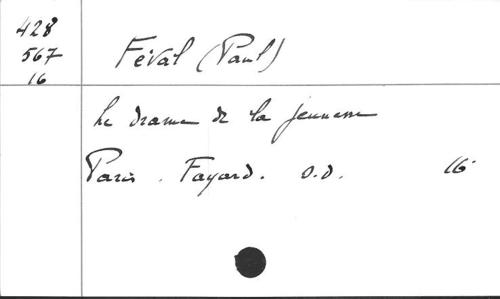 428
567
16
Féval (Paul)
Le drame de la jeunesse
Paris. Fayard. s.d. 16°